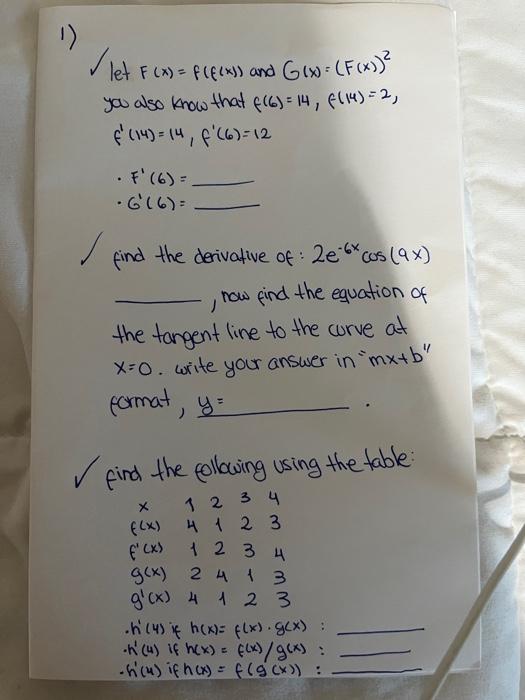 1)
✓ let F(x) = f(f(x)) and G(x) = (F(x))²
you also know that f(6) = 14, f(14) = 2,
f'(14) = 14, f'(6) = 12
· F'(6) = ______
· G'(6) = ______
✓ find the derivative of : 2e^-6x cos(9x)
______, now find the equation of
the tangent line to the curve at
x=0. write your answer in "mx+b"
format, y= ______.
✓ find the following using the table:
x 1 2 3 4
f(x) 4 1 2 3
f'(x) 1 2 3 4
g(x) 2 4 1 3
g'(x) 4 1 2 3
·h'(4) if h(x) = f(x) · g(x) : ______
·h'(4) if h(x) = f(x)/g(x) : ______
·h'(4) if h(x) = f(g(x)) : ______